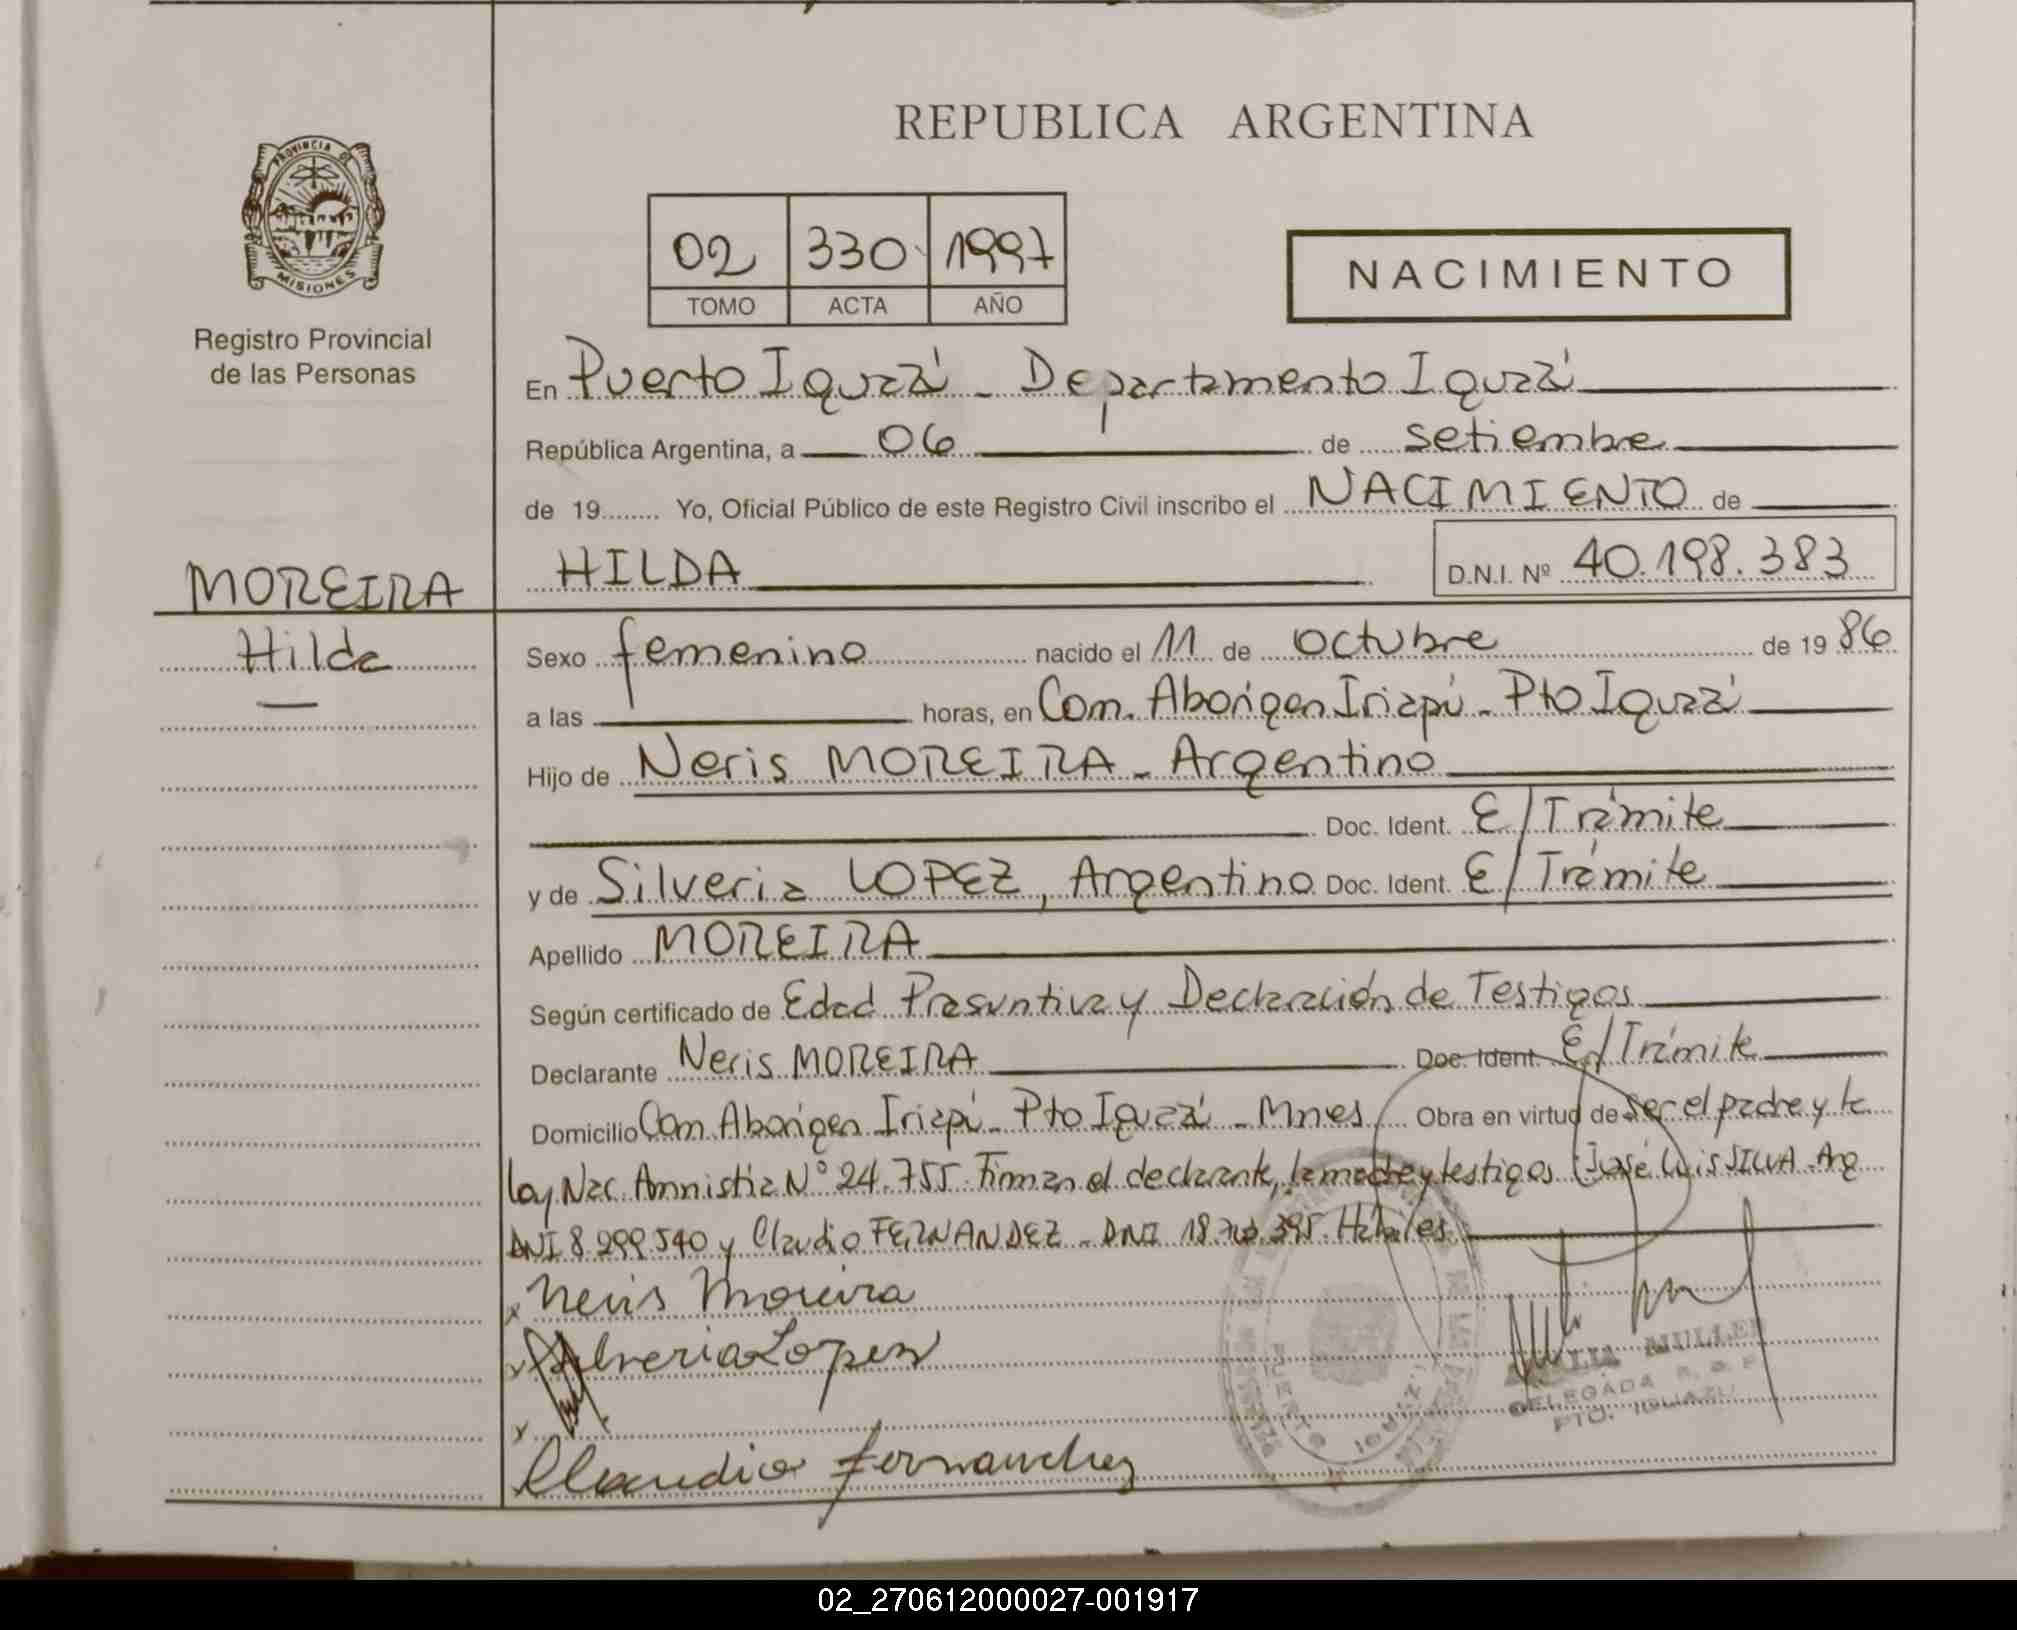 REPUBLICA ARGENTINA
PROVINCIA DE
MISIONES
Registro Provincial
de las Personas
02 330 1997
TOMO ACTA AÑO
NACIMIENTO
En Puerto Iguazú - Departamento Iguazú
República Argentina, a 06 de setiembre
de 19........ Yo, Oficial Público de este Registro Civil inscribo el NACIMIENTO de
HILDA D.N.I. Nº 40.198.383
MOREIRA
Hilda
Sexo femenino nacido el 11 de octubre de 1986
a las horas, en Com. Aborigen Iriapú - Pto Iguazú
Hijo de Neris MOREIRA - Argentino
Doc. Ident. E/Trámite
y de Silveria LOPEZ, Argentino Doc. Ident. E/Trámite
Apellido MOREIRA
Según certificado de Edad Presuntiva y Declaración de Testigos
Declarante Neris MOREIRA Doc. Ident. E/Trámite
Domicilio Com. Aborigen Iriapú - Pto Iguazú - Mnes Obra en virtud de ser el padre y la
Ley Nac. Amnistia N° 24.755. Firman el declarante, la madre y testigos José Luis SILVA - Arg
DNI 8.299.540 y Claudio FERNANDEZ - DNI 18. 395. Hábiles
x Neris Moreira
x Silveria Lopez
x
Claudio fernandez
MULLER
DELEGADA R. P. P.
PTO. IGUAZU
02_270612000027-001917